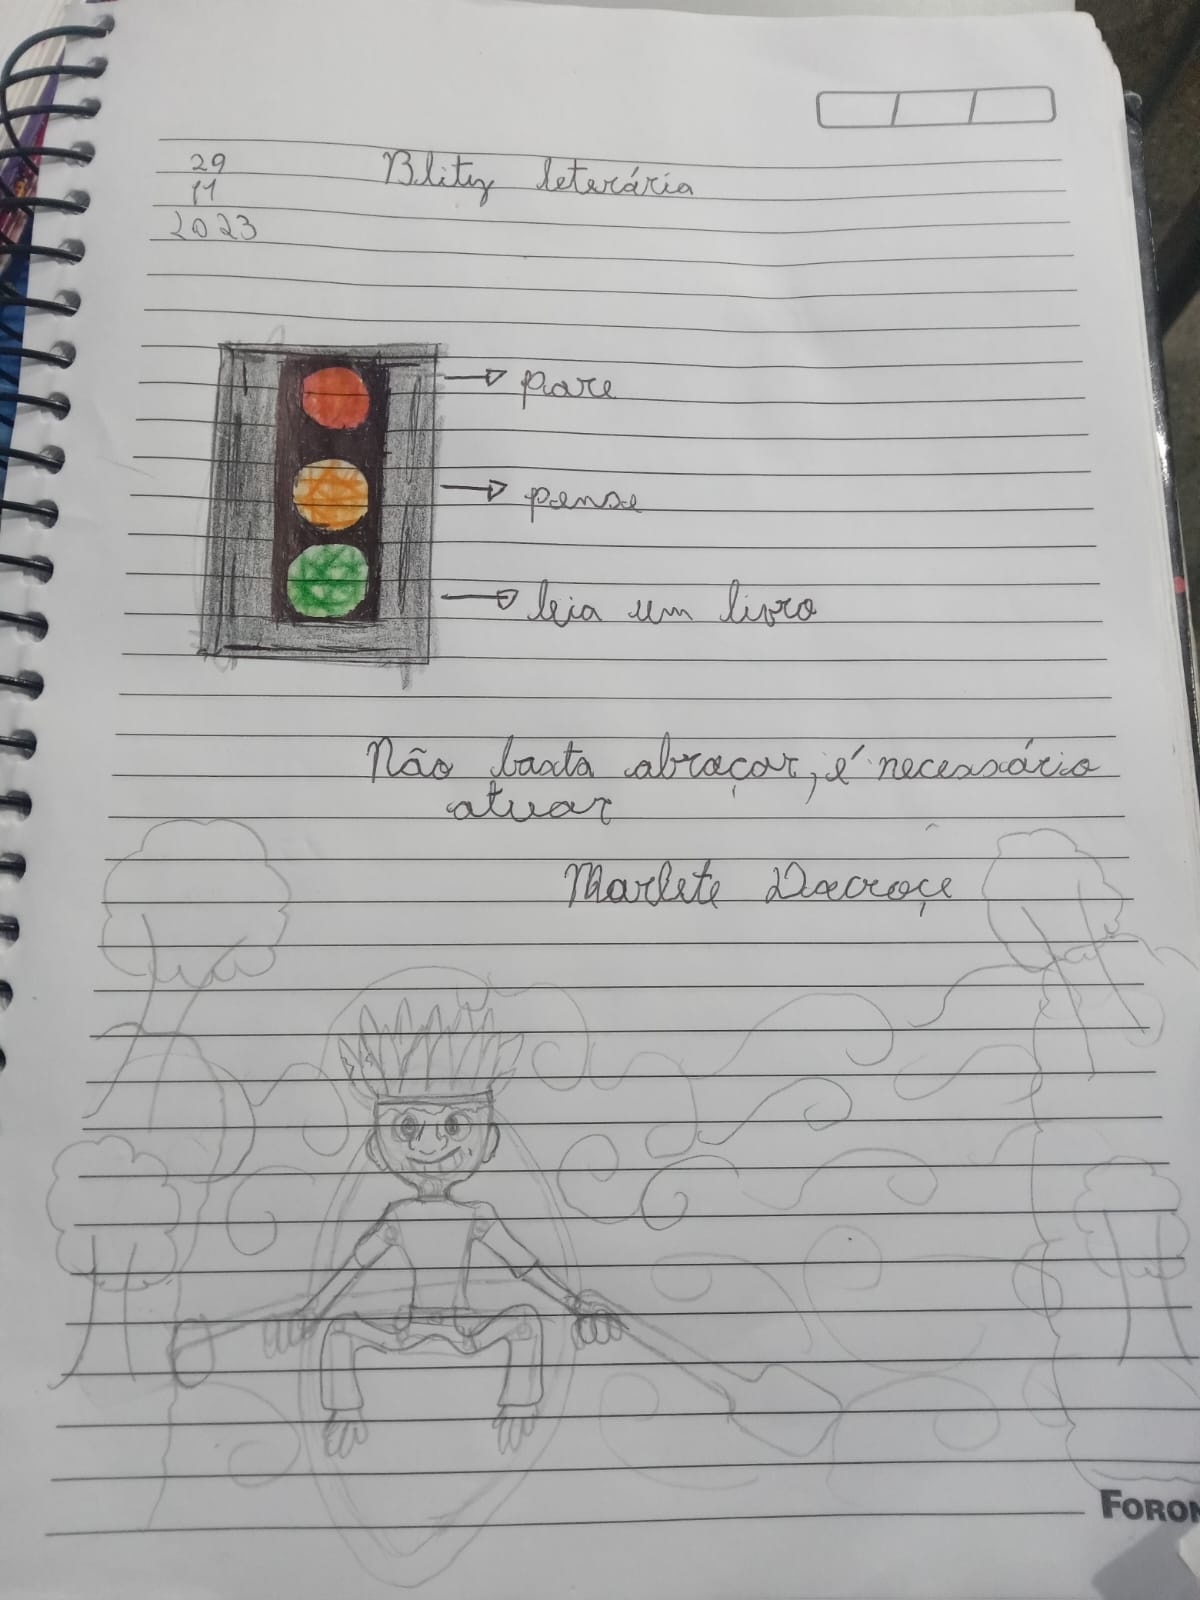 29
11
2023
Blitz leterária
pare
pense
leia um livro
Não basta abraçar, é necessário
atuar
Marlete Dacroçe
FORON